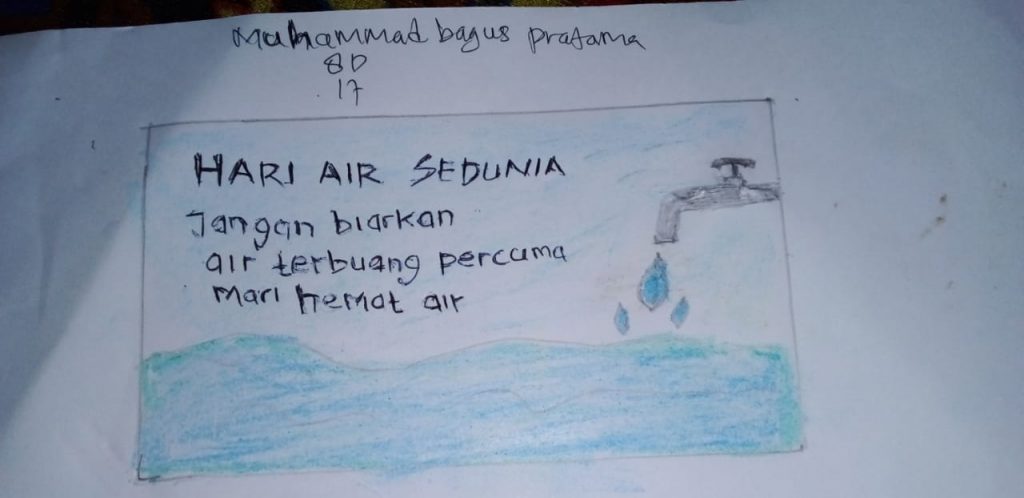 Muhammad bagus pratama
8D
17
HARI AIR SEDUNIA
Jangan biarkan
air terbuang percuma
mari hemat air